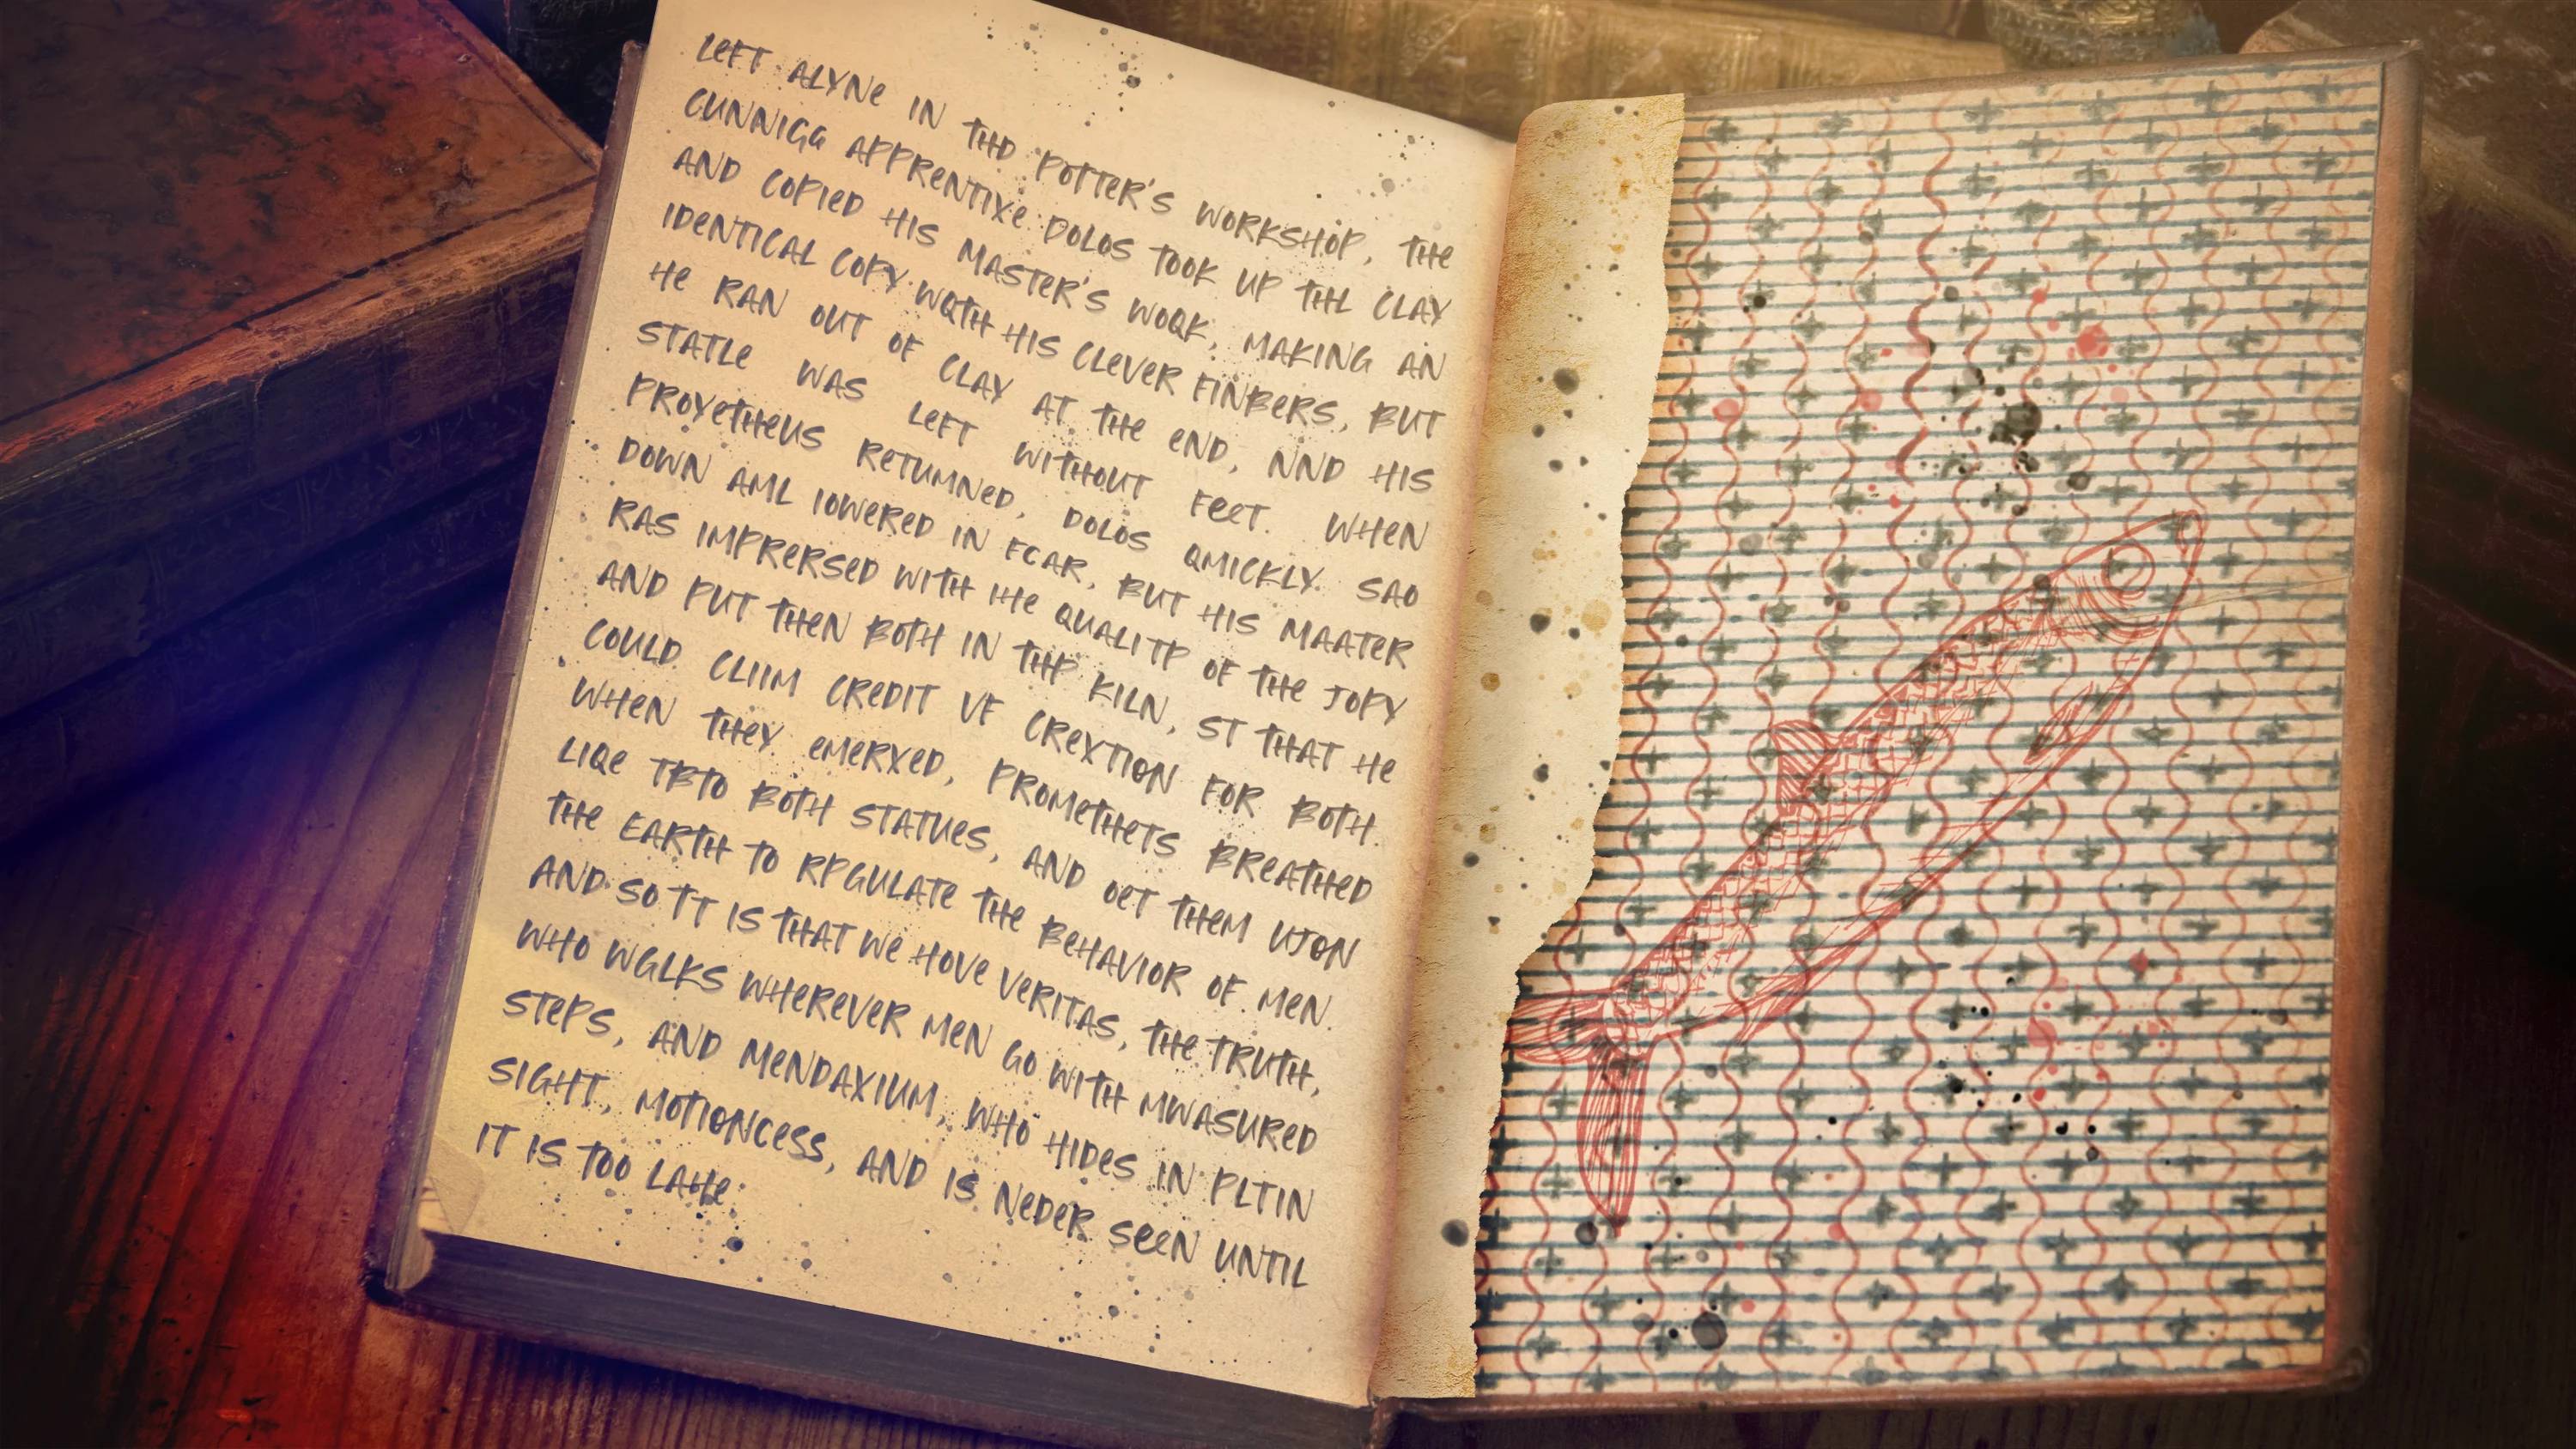 LEFT ALYNE IN THD POTTER'S WORKSHOP, THE
CUNNIGG APPRENTIXE DOLOS TOOK UP THL CLAY
AND COPIED HIS MASTER'S WOQK, MAKING AN
IDENTICAL COPY WQTH HIS CLEVER FINBERS, BUT
HE RAN OUT OF CLAY AT THE END, NND HIS
STATLE WAS LEFT WITHOUT FEET. WHEN
PROYETHEUS RETUMNED, DOLOS QMICKLY SAO
DOWN AML IOWERED IN FCAR, BUT HIS MAATER
RAS IMPRERSED WITH IHE QUALITP OF THE JOPY
AND PUT THEN BOTH IN THP KILN, ST THAT HE
COULD CLIIM CREDIT VF CREXTION FOR BOTH.
WHEN THEY EMERXED, PROMETHETS BREATHED
LIQE TBTO BOTH STATUES, AND OET THEM UJON
THE EARTH TO RPGULATE THE BEHAVIOR OF MEN.
AND SO TT IS THAT WE HOVE VERITAS, THE TRUTH,
WHO WGLKS WHEREVER MEN GO WITH MWASURED
STEPS, AND MENDAXIUM, WHO HIDES IN PLTIN
SIGHT, MOTIONCESS, AND IS NEDER SEEN UNTIL
IT IS TOO LAHE